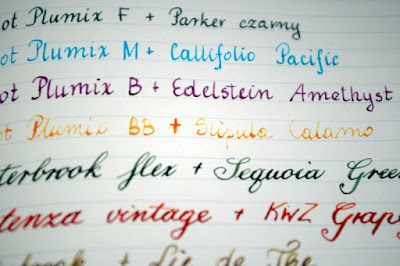 ot Plumix F + Parker czarny
ot Plumix M + Callifolio Pacific
ot Plumix B + Edelstein Amethyst
ot Plumix BB + Stipula Calamo
terbrook flex + Sequoia Gree
tenza vintage + KWZ Grap
brook + Lie de Thé